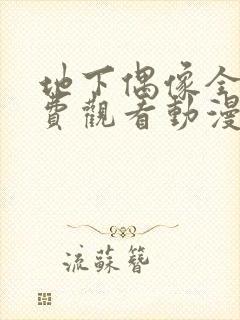 地下偶像全
費觀看動漫
流蘇簪